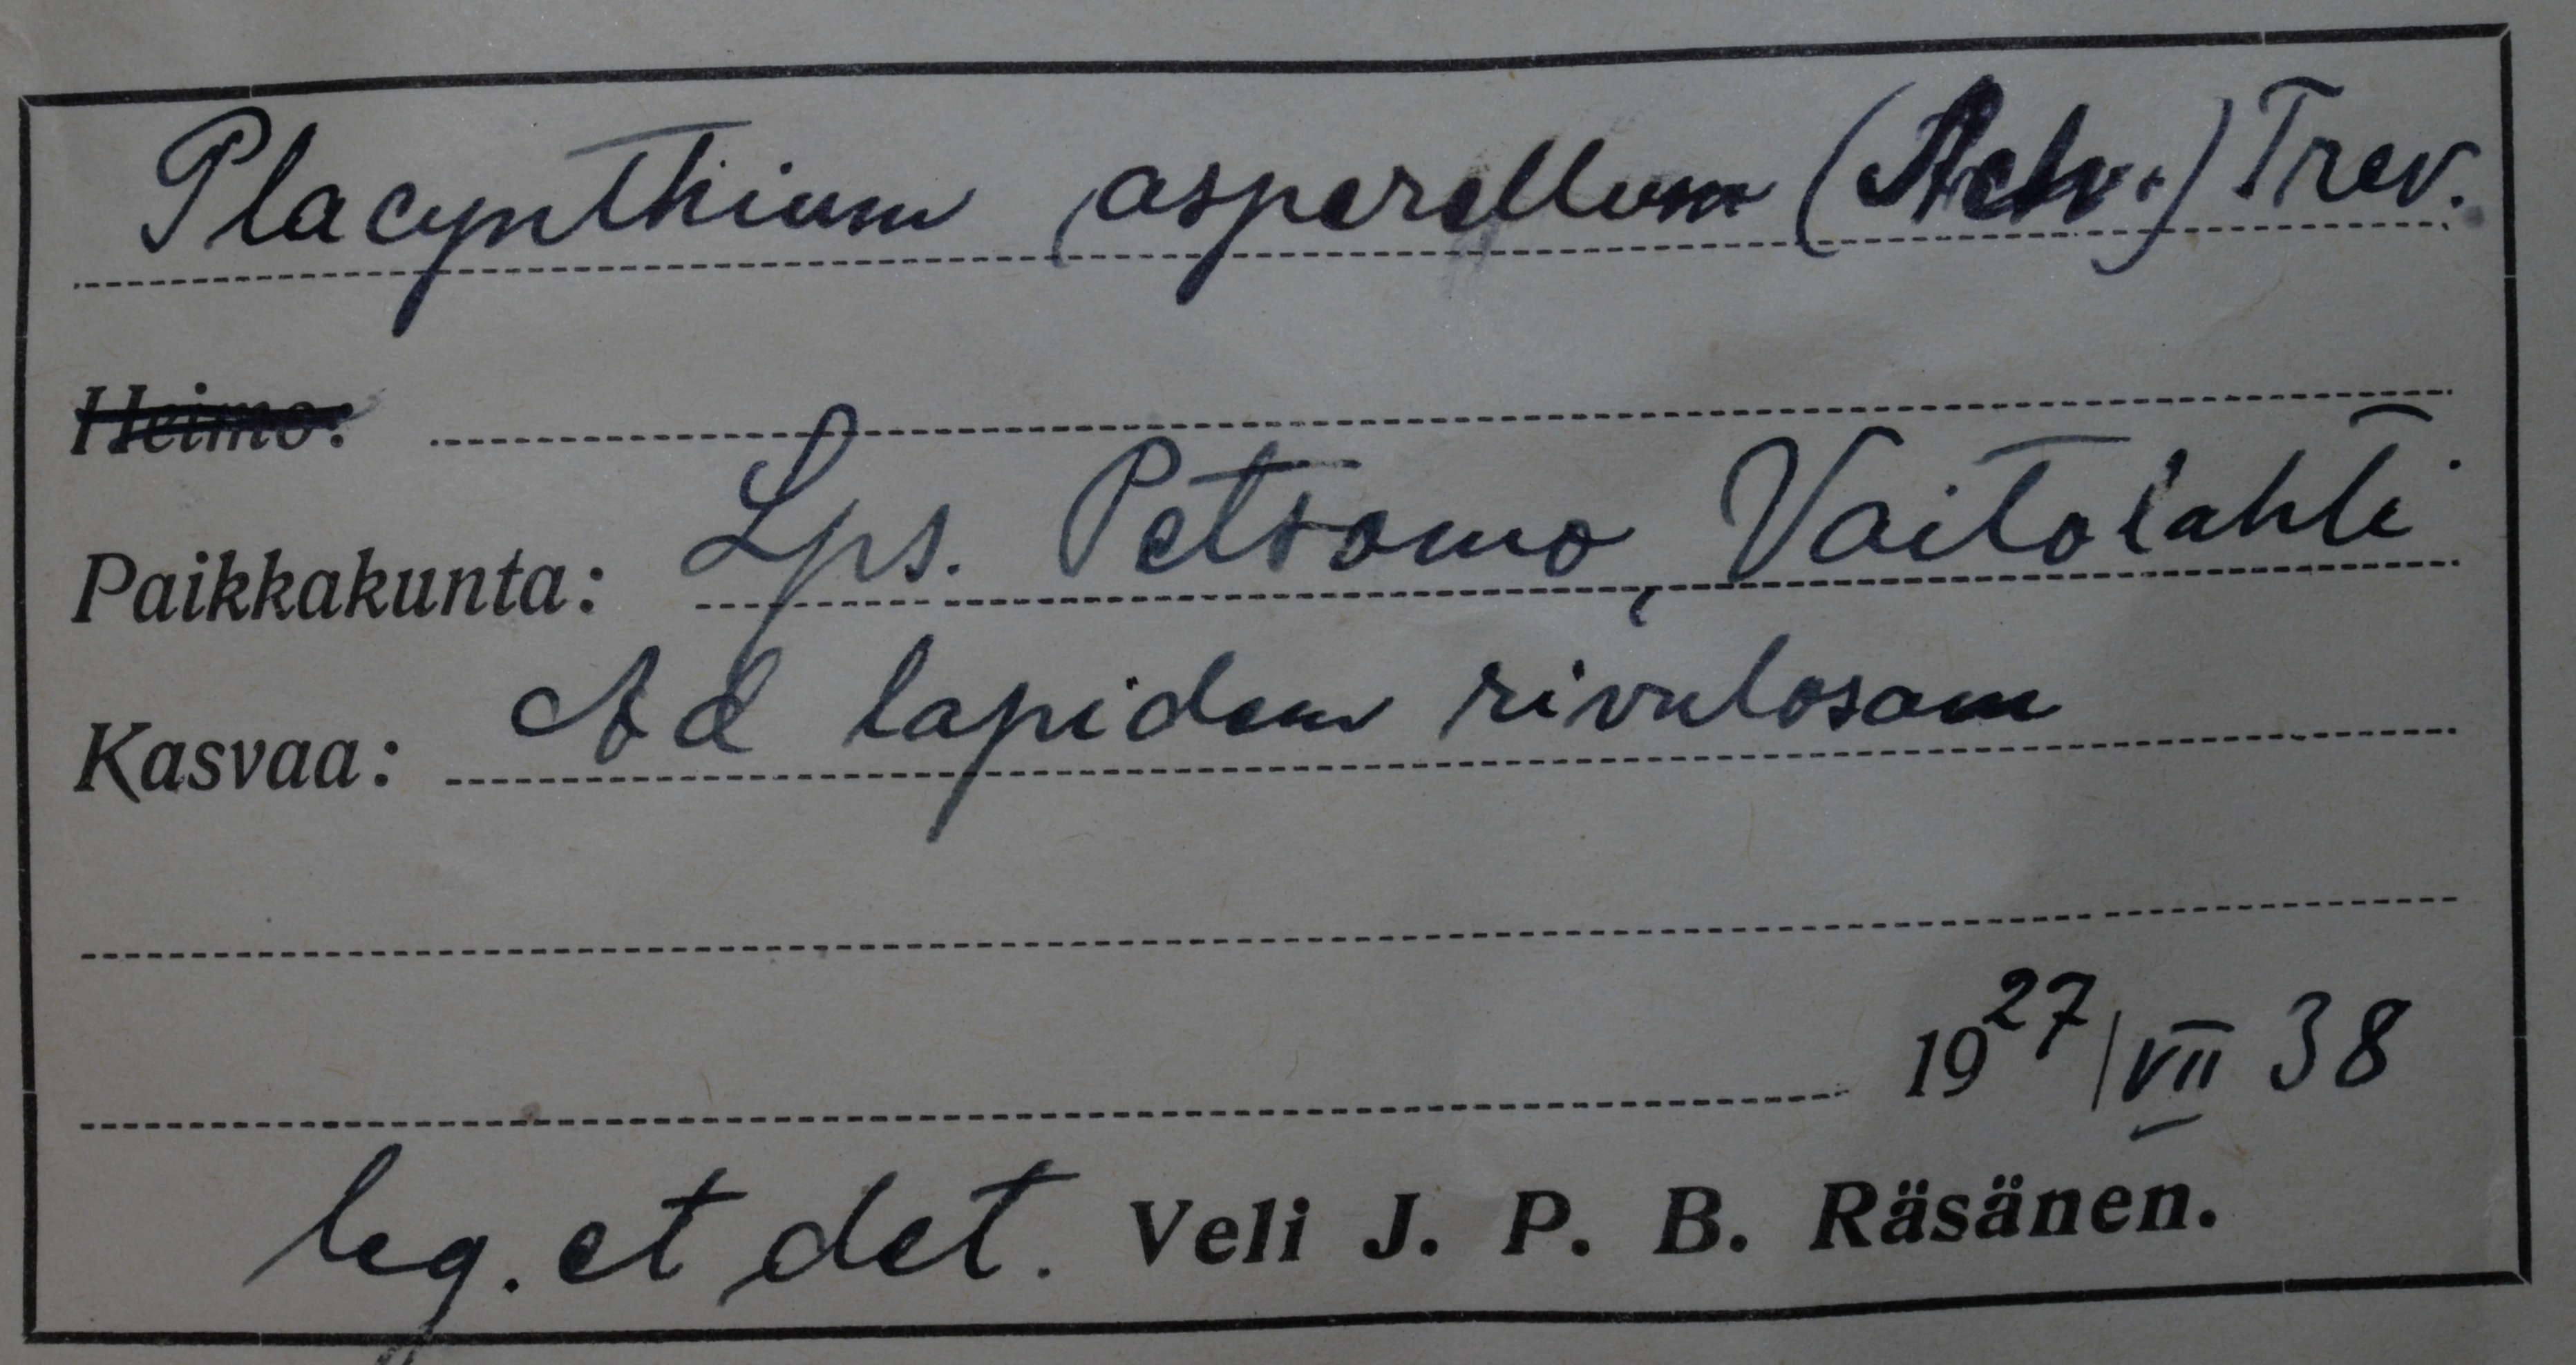 Placynthium asperellum (Ach.) Trev.
Heimo:
Paikkakunta: Lps. Petsamo, Vaitolahti
Kasvaa: Ad lapidem rivulosam
19 27/VII 38
leg. et det. Veli J. P. B. Räsänen.